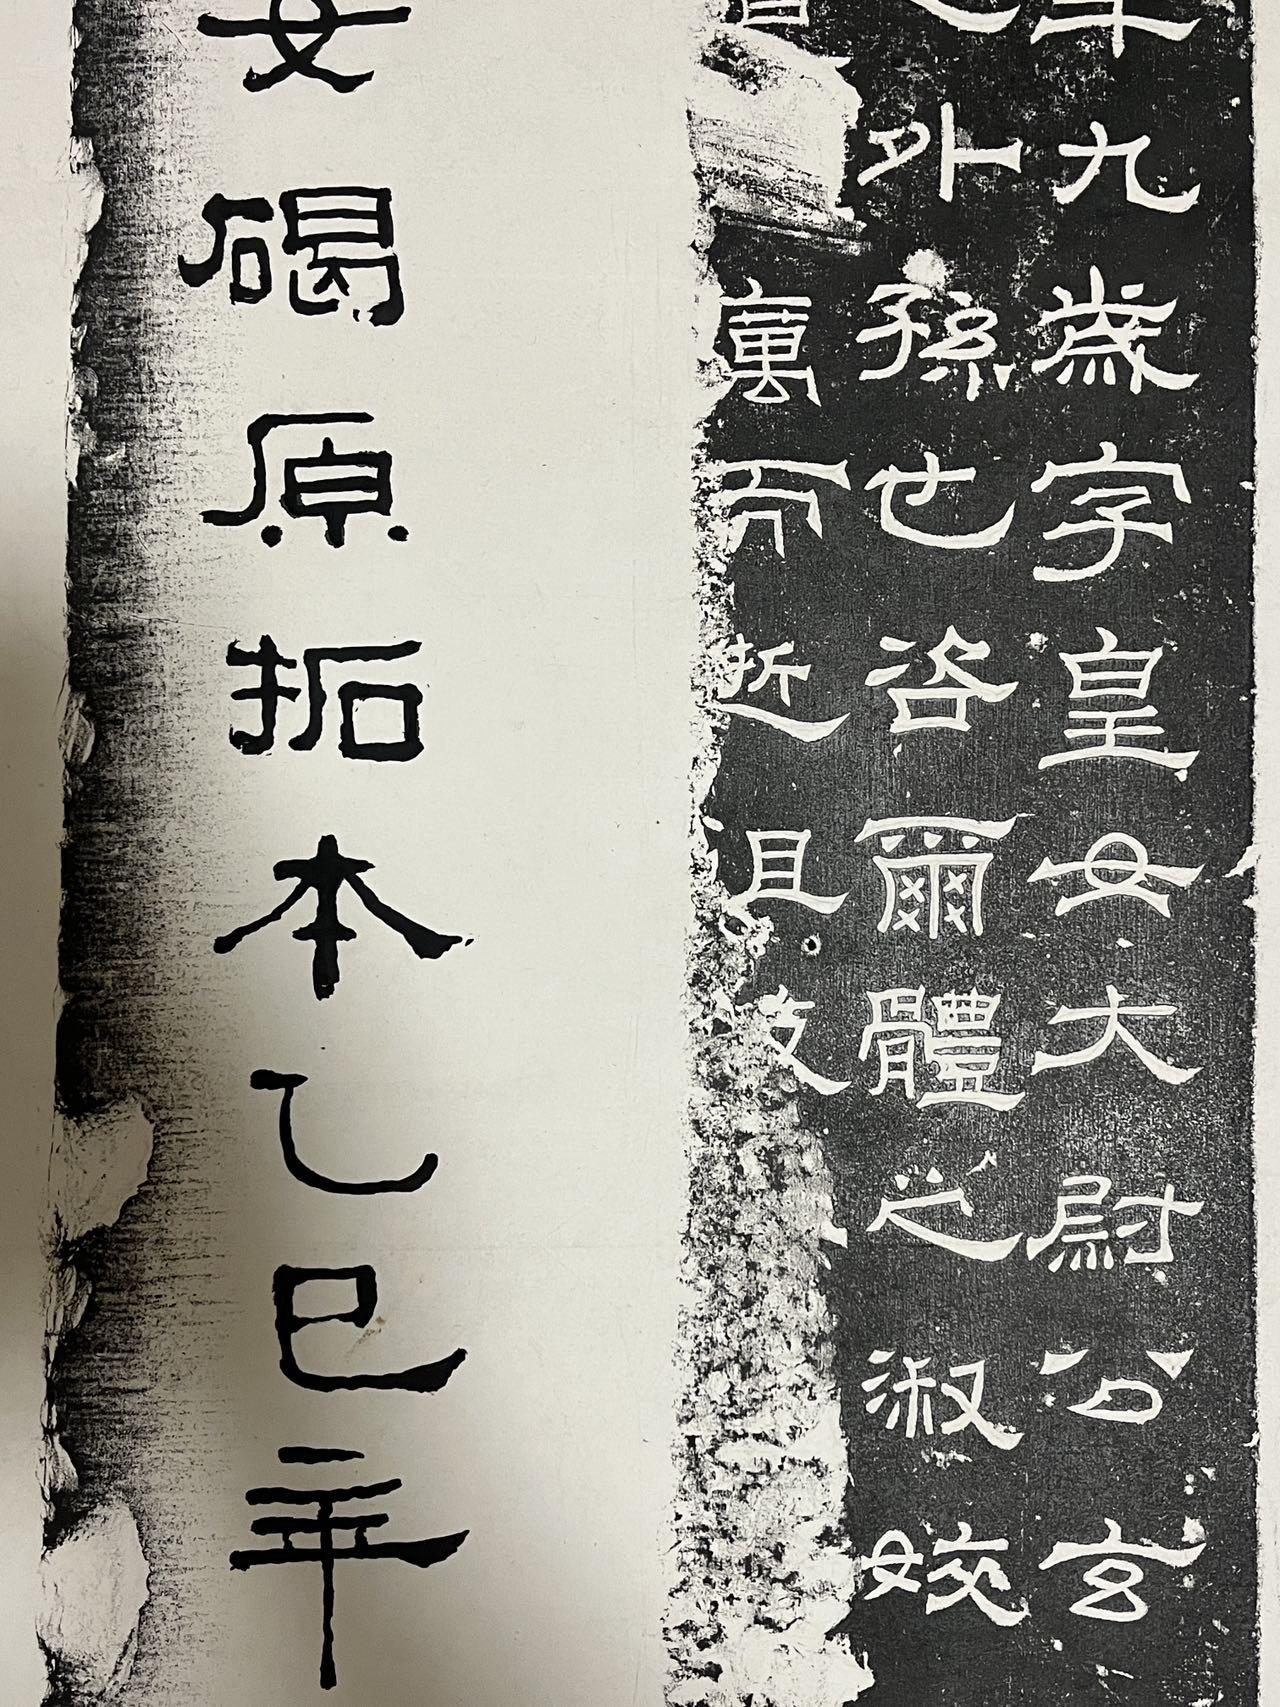 年九歲字皇女大尉公玄
之外孫也咨爾體之淑姣
萬
逝且
女碣原拓本乙巳年